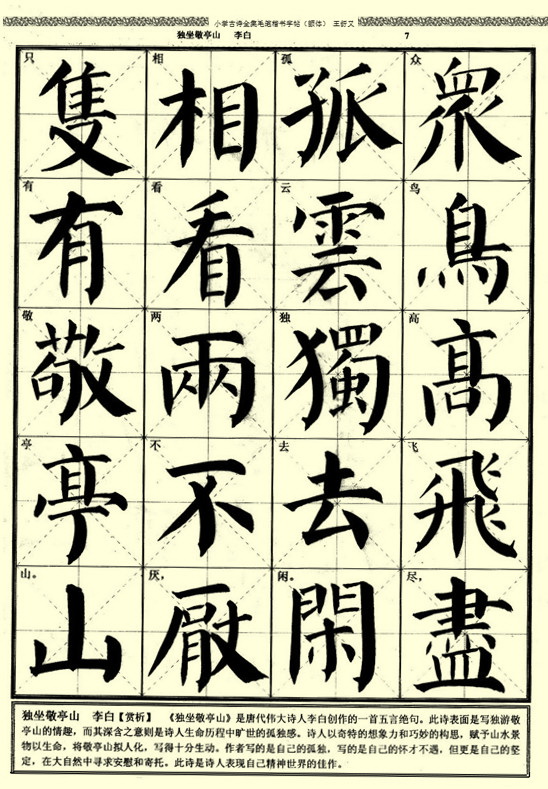 小学古诗全集毛笔楷书字帖（颜体）
独坐敬亭山 李白 7
众 鸟 高 飞 尽，
眾鳥髙飛盡
孤 云 独 去 闲。
孤雲獨去閑
相 看 两 不 厌，
相看兩不厭
只 有 敬 亭 山。
隻有敬亭山
独坐敬亭山 李白【赏析】 《独坐敬亭山》是唐代伟大诗人李白创作的一首五言绝句。此诗表面是写独游敬
亭山的情趣，而其深含之意则是诗人生命历程中旷世的孤独感。诗人以奇特的想象力和巧妙的构思，赋予山水景
物以生命，将敬亭山拟人化，写得十分生动。作者写的是自己的孤独，写的是自己的怀才不遇，但更是自己的坚
定，在大自然中寻求安慰和寄托。此诗是诗人表现自己精神世界的佳作。